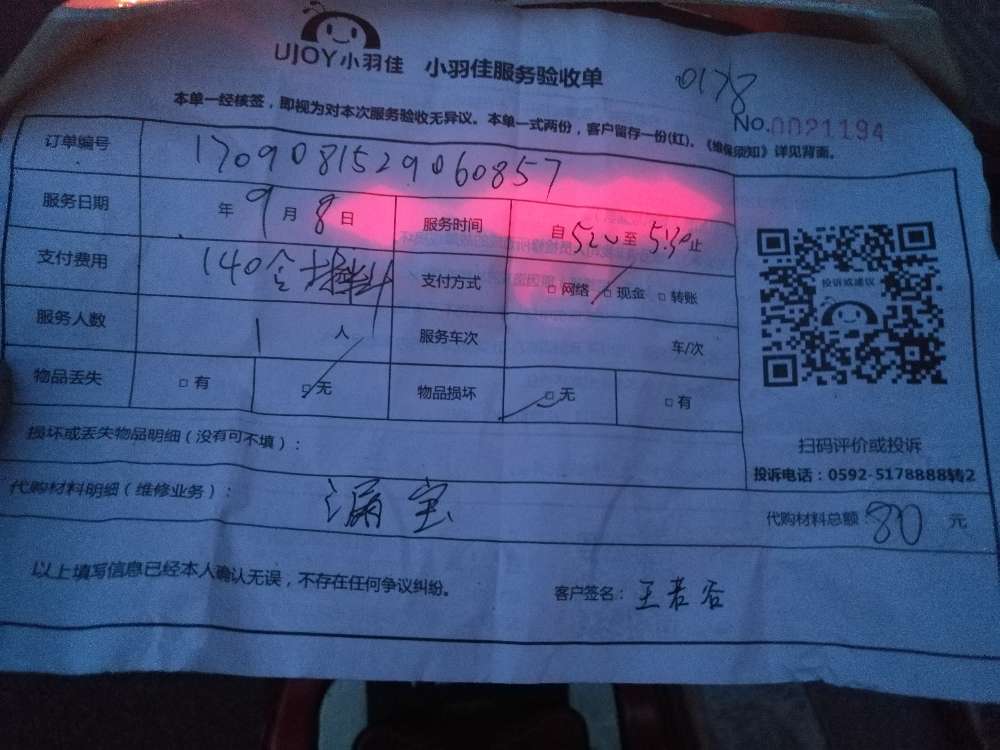 UJOY小羽佳 小羽佳服务验收单
0178
No.0021194
本单一经核签，即视为对本次服务验收无异议。本单一式两份，客户留存一份(红)。《维保须知》详见背面。
订单编号 170908152906085​7
服务日期 年 9 月 8 日 服务时间 自 5:20 至 5:30 止
支付费用 140含材料 支付方式 □ 网络 □ 现金 □ 转账
服务人数 1 人 服务车次 车/次
物品丢失 □ 有 □ 无 物品损坏 □ 无 □ 有
投诉或建议
扫码评价或投诉
投诉电话：0592-5178888转2
损坏或丢失物品明细（没有可不填）：
代购材料明细（维修业务）： 漏宝 代购材料总额 80 元
以上填写信息已经本人确认无误，不存在任何争议纠纷。 客户签名：王若谷